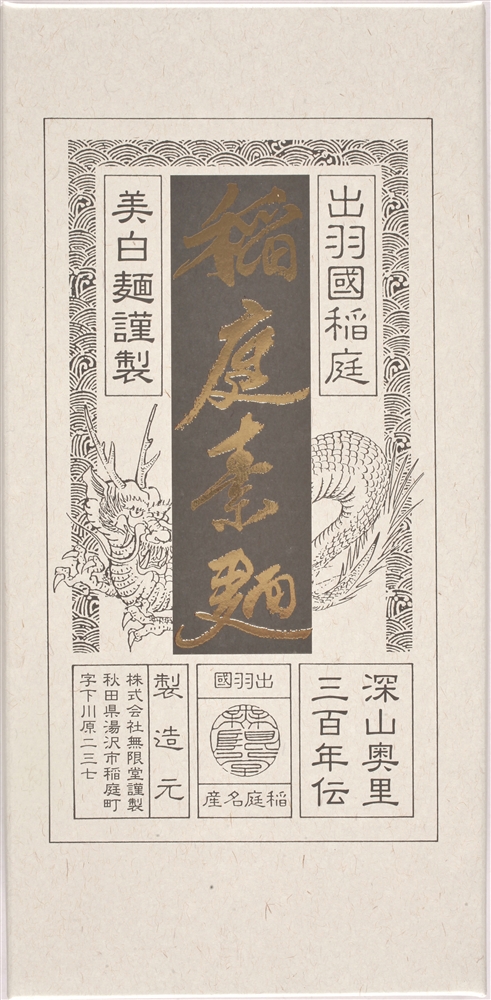 出羽國稲庭
稲庭素麺
美白麺謹製
深山奥里
三百年伝
出羽國
稲庭名産
製造元
株式会社無限堂謹製
秋田県湯沢市稲庭町
字下川原二三七